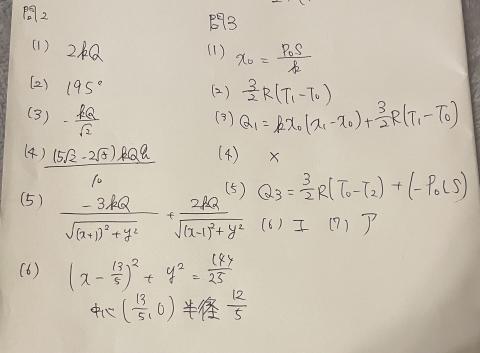 問2
(1) 2kQ
(2) 195°
(3) - kQ/√2
(4) (5√2-2√5)kQq/10
(5) -3kQ/√((x+1)²+y²) + 2kQ/√((x-1)²+y²)
(6) (x-13/5)² + y² = 144/25
中心(13/5, 0) 半径 12/5
問3
(1) x₀ = P₀S/k
(2) 3/2 R(T₁-T₀)
(3) Q₁=kx₀(x₁-x₀)+3/2 R(T₁-T₀)
(4) ×
(5) Q₃=3/2 R(T₀-T₂)+(-P₀LS)
(6) エ (7) ア